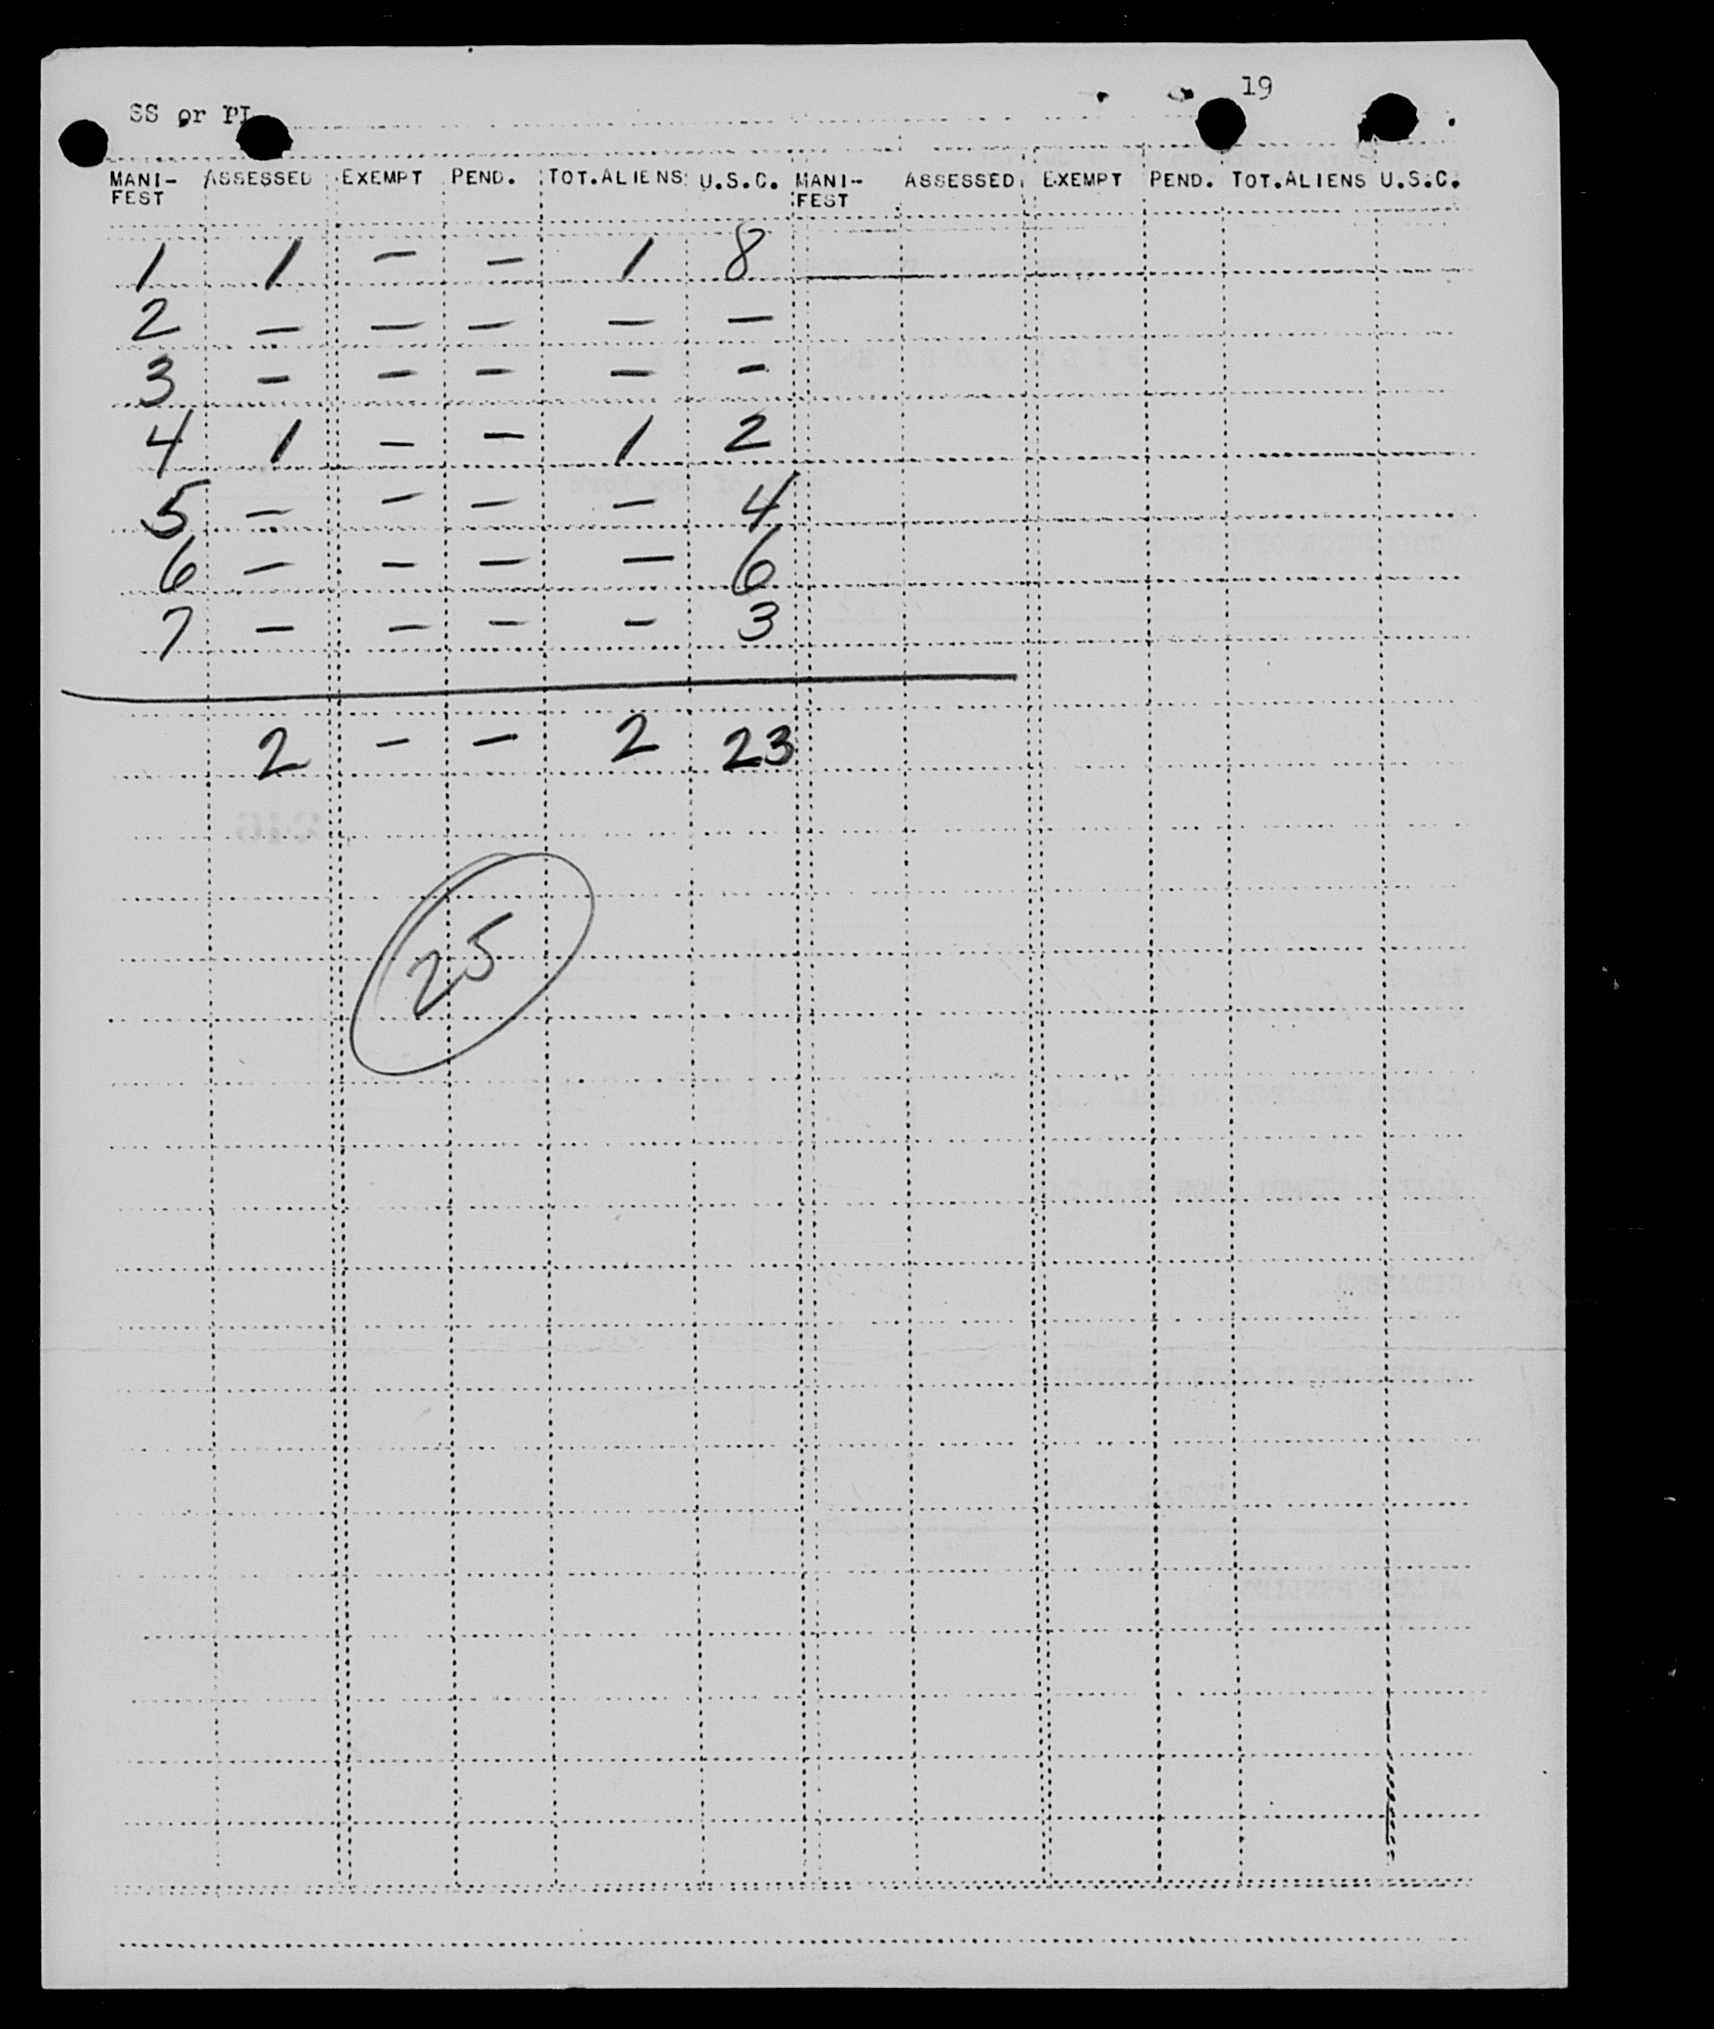 19
SS or PL
MANI-FEST ASSESSED EXEMPT PEND. TOT.ALIENS U.S.C. MANI-FEST ASSESSED EXEMPT PEND. TOT.ALIENS U.S.C.
1 1 — — 1 8
2 — — — — —
3 — — — — —
4 1 — — 1 2
5 — — — — 4
6 — — — — 6
7 — — — — 3
2 — — 2 23
25